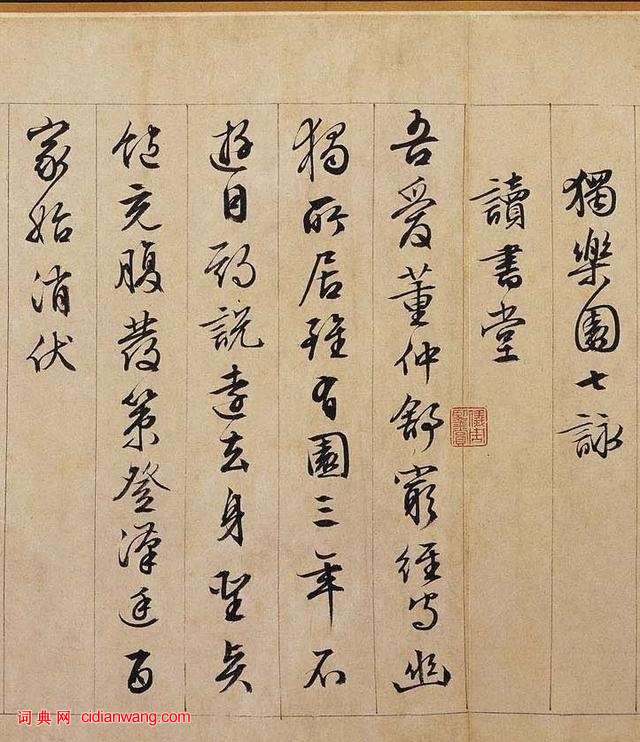 獨樂園七詠
讀書堂
吾愛董仲舒窮經守幽
獨所居雖有園三年不
遊目邪說遠去身聖言
飽充腹發策登漢廷百
家始消伏
词典网 cidianwang.com